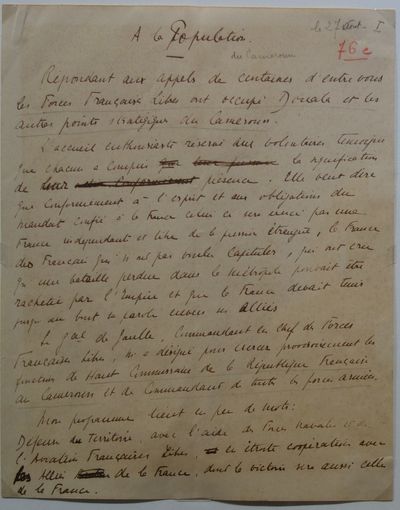 A la Population
le 27 Août I
du Cameroun
76 c
Repondant aux appels de centaines d'entre vous
les Forces Françaises Libres ont occupé Douala et les
autres points stratégiques du Cameroun.
L'accueil enthousiaste réservé aux volontaires témoigne
que chacun a compris la signification
de leur présence. Elle veut dire
que conformément à l'esprit et aux obligations du
mandat confié à la France celui ci sera exercé par une
France indépendante et libre de la pression étrangère, la France
des Français qui n'ont pas voulu capituler, qui ont cru
qu'une bataille perdue dans la métropole pouvait être
rachetée par l'Empire et que la France devait tenir
jusqu'au bout sa parole envers ses Alliés
Le Gal de Gaulle, Commandant en chef des Forces
Françaises Libres, m'a désigné pour exercer provisoirement les
fonctions de Haut Commissaire de la République Française
au Cameroun et de Commandant de toutes les forces armées.
Mon programme tient en peu de mots:
Défense du Territoire, avec l'aide des Forces navales et de
l'Aviation Françaises Libres, en étroite coopération avec
les Alliés de la France, dont la victoire sera aussi celle
de la France.